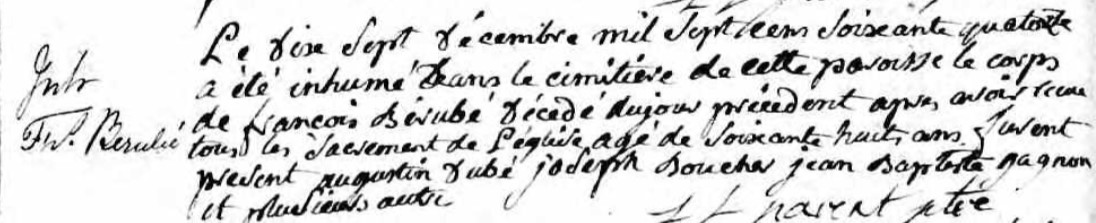 Inh
Frs. Berubé
Le dixe Sept décembre mil Sept cens Soixante quatorze
a été inhumé dans le cimitière de cette paroisse le corps
de françois Bérubé décédé dujour précédent apres avoir recue
tous les Sacrement de L'église agé de Soixante huit ans, furent
present augustin dubé joseph Boucher jean Baptiste gagnon
et plusieurs autre
parent ptre